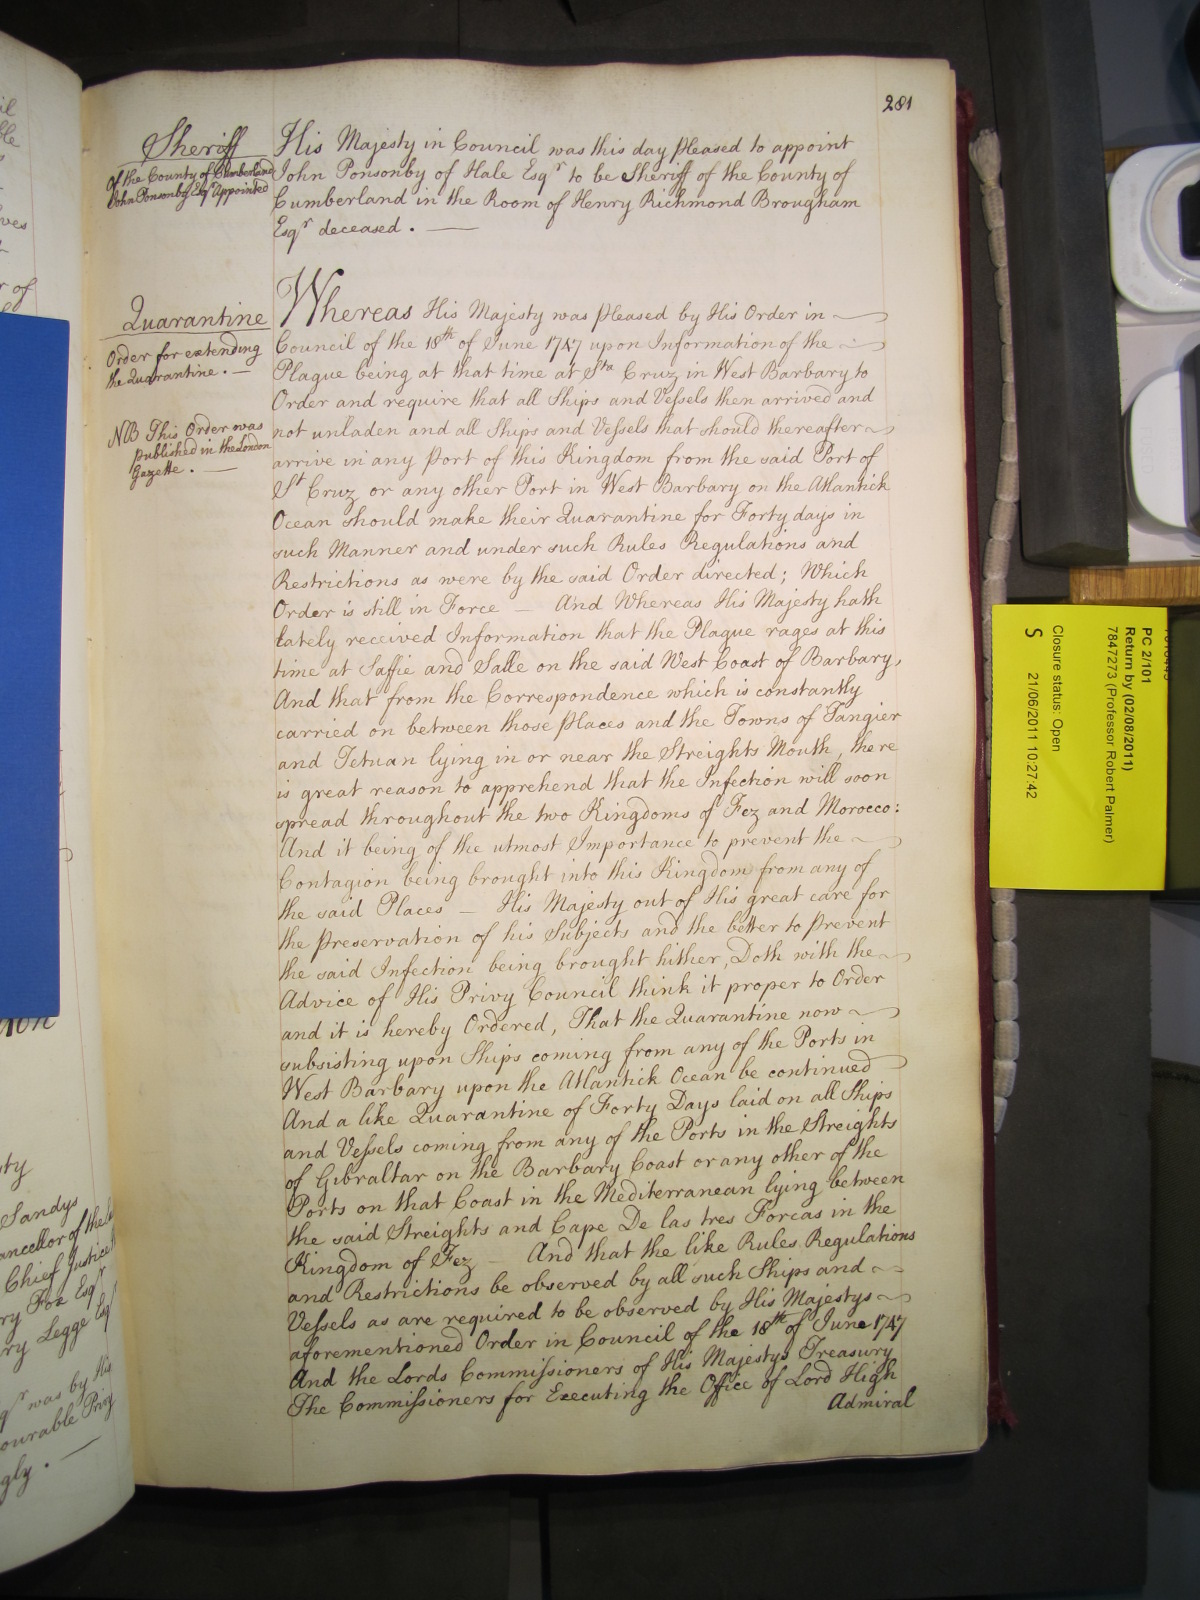 281
Sheriff
Of the County of Cumberland
John Ponsonby Esqr Appointed
His Majesty in Council was this day pleased to appoint
John Ponsonby of Hale Esqr to be Sheriff of the County of
Cumberland in the Room of Henry Richmond Brougham
Esqr deceased. —
Quarantine
Order for extending
the Quarantine. —
NB This Order was
published in the London
Gazette. —
Whereas His Majesty was pleased by His Order in
Council of the 18th of June 1747 upon Information of the
Plague being at that time at Sta Cruz in West Barbary to
Order and require that all Ships and Vessels then arrived and
not unladen and all Ships and Vessels that should thereafter
arrive in any Port of this Kingdom from the said Port of
St Cruz or any other Port in West Barbary on the Atlantick
Ocean should make their Quarantine for Forty days in
such Manner and under such Rules Regulations and
Restrictions as were by the said Order directed; Which
Order is still in Force — And Whereas His Majesty hath
lately received Information that the Plague rages at this
time at Saffie and Salle on the said West Coast of Barbary,
And that from the Correspondence which is constantly
carried on between those places and the Towns of Tangier
and Tetuan lying in or near the Streights Mouth, there
is great reason to apprehend that the Infection will soon
spread throughout the two Kingdoms of Fez and Morocco:
And it being of the utmost Importance to prevent the
Contagion being brought into this Kingdom from any of
the said Places — His Majesty out of His great care for
the preservation of his Subjects and the better to prevent
the said Infection being brought hither, Doth with the
Advice of His Privy Council think it proper to Order
and it is hereby Ordered, That the Quarantine now
subsisting upon Ships coming from any of the Ports in
West Barbary upon the Atlantick Ocean be continued
And a like Quarantine of Forty Days laid on all Ships
and Vessels coming from any of the Ports in the Streights
of Gibraltar on the Barbary Coast or any other of the
Ports on that Coast in the Mediterranean lying between
the said Streights and Cape De las tres Forcas in the
Kingdom of Fez — And that the like Rules Regulations
and Restrictions be observed by all such Ships and
Vessels as are required to be observed by His Majestys
aforementioned Order in Council of the 18th of June 1747
And the Lords Commissioners of His Majestys Treasury
The Commissioners for Executing the Office of Lord High
Admiral
PC 2/101
Return by (02/08/2011)
7847273 (Professor Robert Palmer)
Closure status: Open
S 21/06/2011 10:27:42
Sandys
Chief Justice
Legge Esqr
was by His